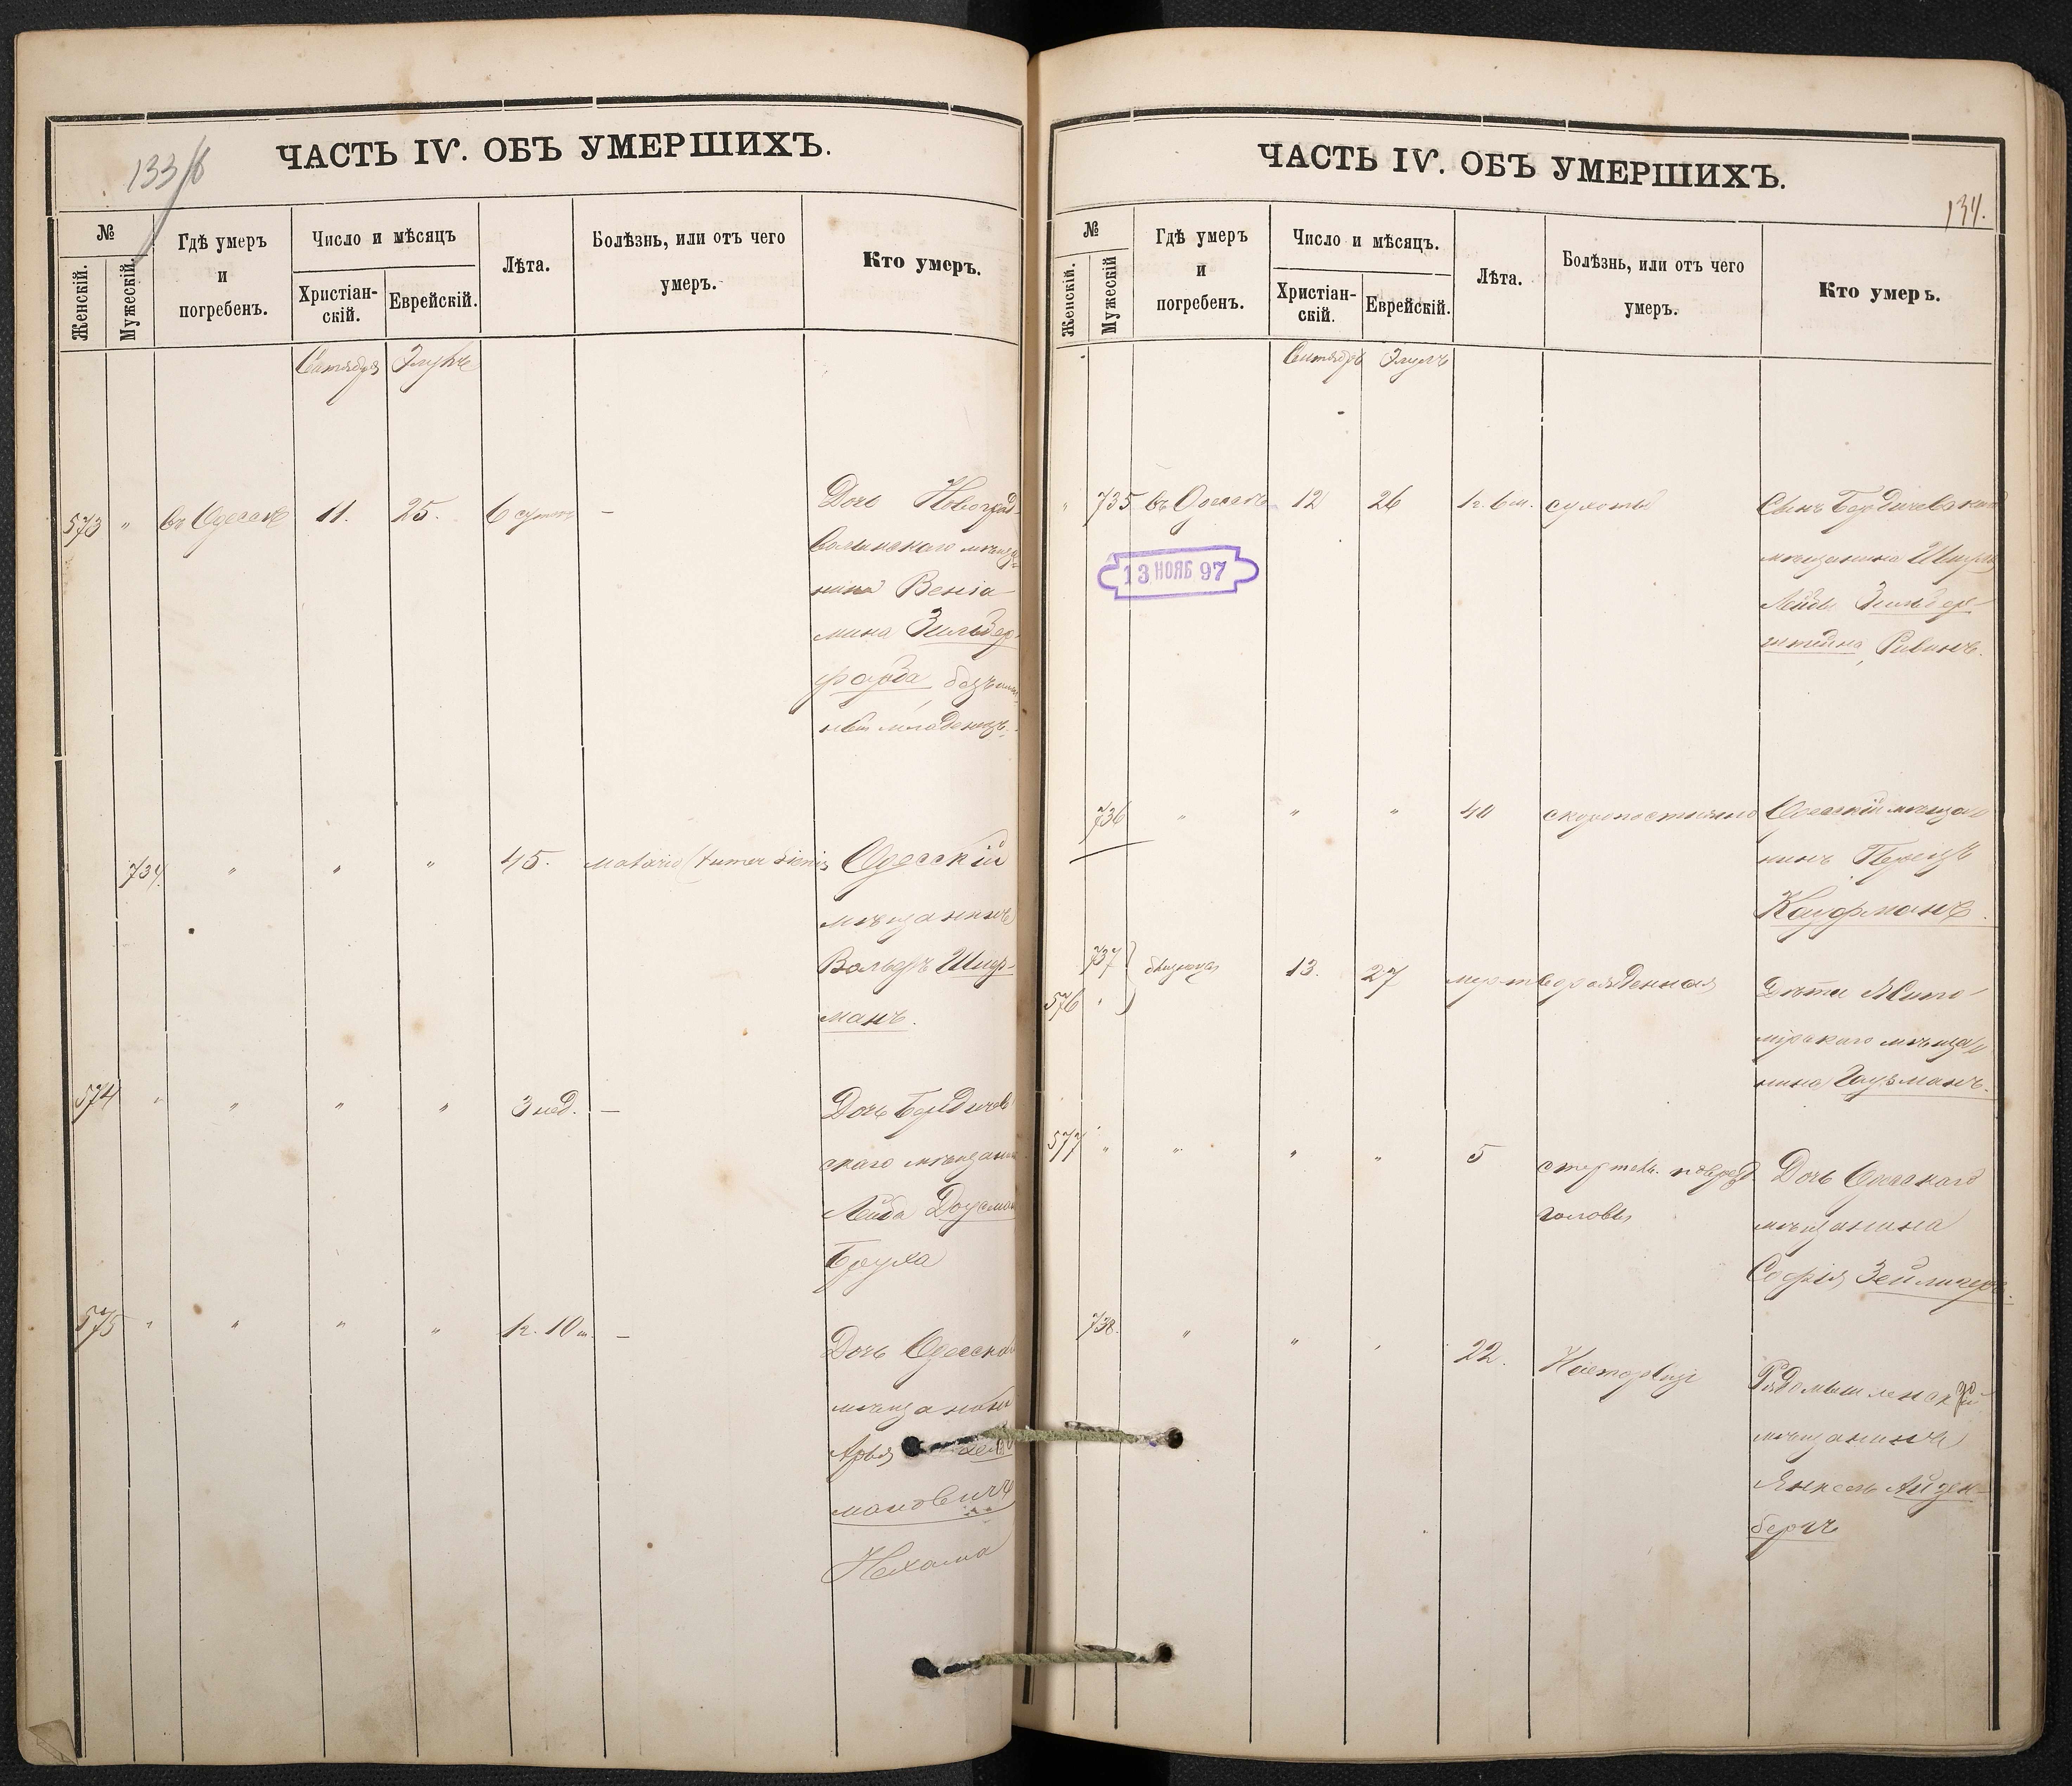 133/б
ЧАСТЬ IV. ОБЪ УМЕРШИХЪ.
№
Женскій.
Мужескій.
Гдѣ умеръ
и
погребенъ.
Число и мѣсяцъ
Христіан-
скій.
Еврейскій.
Лѣта.
Болѣзнь, или отъ чего
умеръ.
Кто умеръ.
Сентября Элулъ
573 " въ Одессѣ 11. 25. 6 сутокъ —
Дочь Новоград-
волынскаго мѣща-
нина Веніа-
мина Зильбер-
фарба
младенецъ.
734. " " " 45.
Одесскій
мѣщанинъ
Вольфъ Шнур-
манъ.
574 " " " " 3 нед. —
Дочь Бердичев
скаго мѣщанина
Лейба
Бруха
575 " " " " 1 г. 10 м. —
Дочь Одесскаго
мѣщанина
Арья
мановичъ
Нехама
134.
ЧАСТЬ IV. ОБЪ УМЕРШИХЪ.
№
Женскій.
Мужескій
Гдѣ умеръ
и
погребенъ.
Число и мѣсяцъ.
Христіан-
скій.
Еврейскій.
Лѣта.
Болѣзнь, или отъ чего
умеръ.
Кто умеръ.
Сентябрь Элулъ
" 735 въ Одессѣ 12 26 1 г. 6 м. сухоты
13 НОЯБ 97
Сынъ Бердичевскаго
мѣщанина Шмуль
Лейбы Зильбер-
штейна, Рувинъ.
736 " " " 40 скоропостижно
Одесскій мѣща
нинъ Перецъ
Кауфманъ.
737
576 " 13. 27 мертворожденная
Дѣти Жито-
мірскаго мѣща
нина Гаузманъ.
577 " " " " 5 смертел. повреж.
головы
Дочь Одесскаго
мѣщанина
Софія Зейлигеръ.
738. " " " 22.
Радомысленск
мѣщанинъ
Янкель Айзен-
бергъ